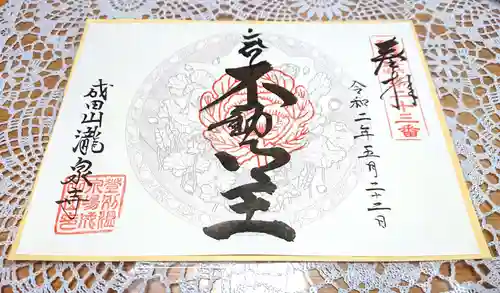 奉拝
三番
令和二年五月二十二日
不動明王
成田山瀧泉寺